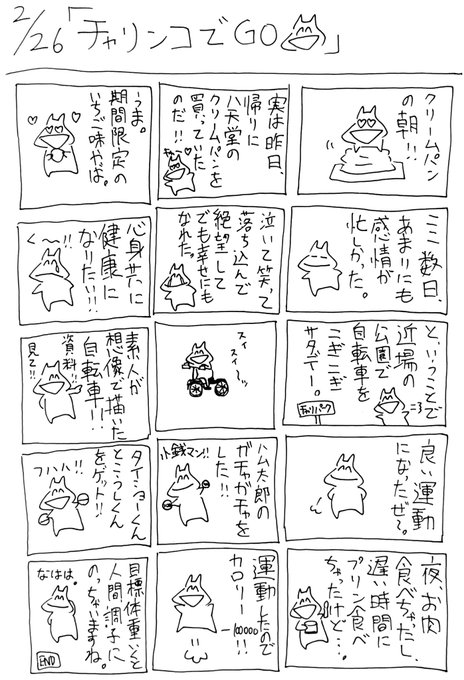 2/26「チャリンコでGO」
クリームパン
の朝!!
実は昨日、
帰りに
八天堂の
クリームパンを
買っていた
のだ!!
うま。
期間限定の
いちご味やば。
ここ数日、
あまりにも
感情が
忙しかった。
泣いて笑って
落ち込んで
絶望して
でも幸せにも
なれた。
心身共に
健康に
なりたい!!
く〜!!
と、いうことで
近場の
公園で
自転車を
こぎこぎ
サタデー。
チャリパーク
スイ
スイ〜
素人が
想像で描いた
自転車!!
資料!!
見て!!
良い運動
になったぜ〜。
ハム太郎の
ガチャガチャを
した!!
小銭マン!!
タイショーくん
とこうしくん
をゲット!!
フハハ!!
夜、お肉
食べちゃったし、
遅い時間に
プリン食べ
ちゃったけど…
運動したので
カロリー
-100000!!
目標体重いくと
人間調子に
のっちゃいますね。
なはは。
END